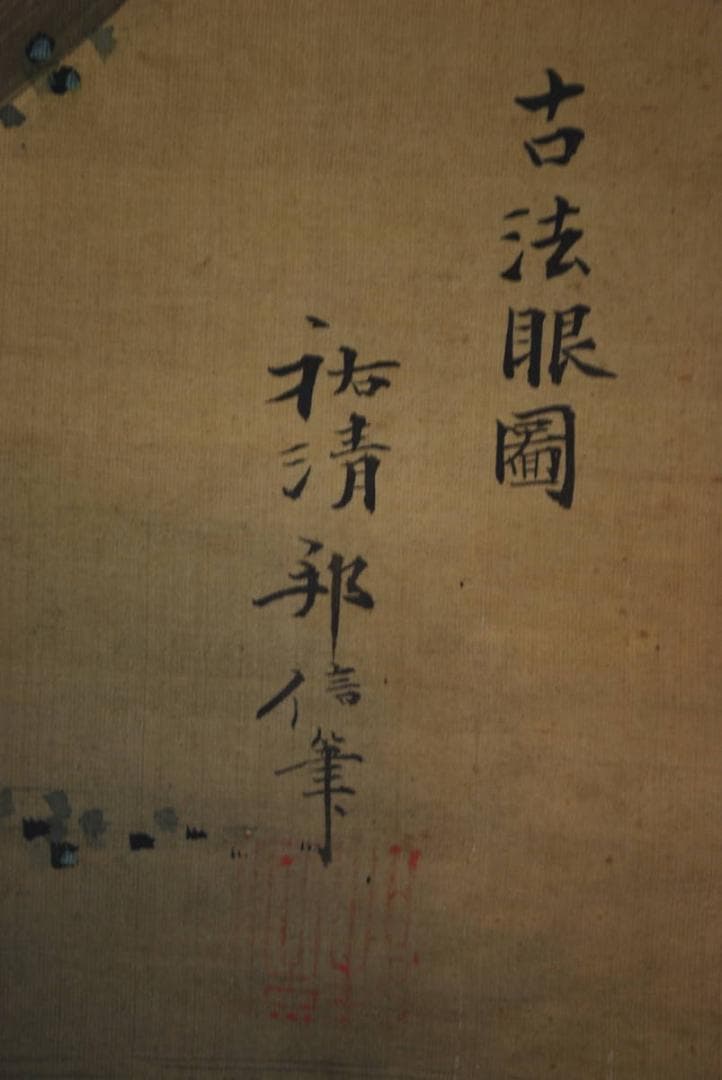 古法眼圖
祐清邦信筆